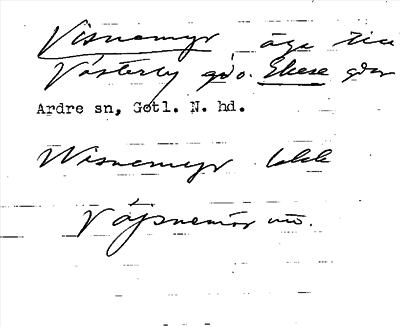 Visnemyr, äga till
Västerby gd o. Ekese gdar
Ardre sn, Gotl. N. hd.
Wisnemyr bkk
Väjsnemör uö.